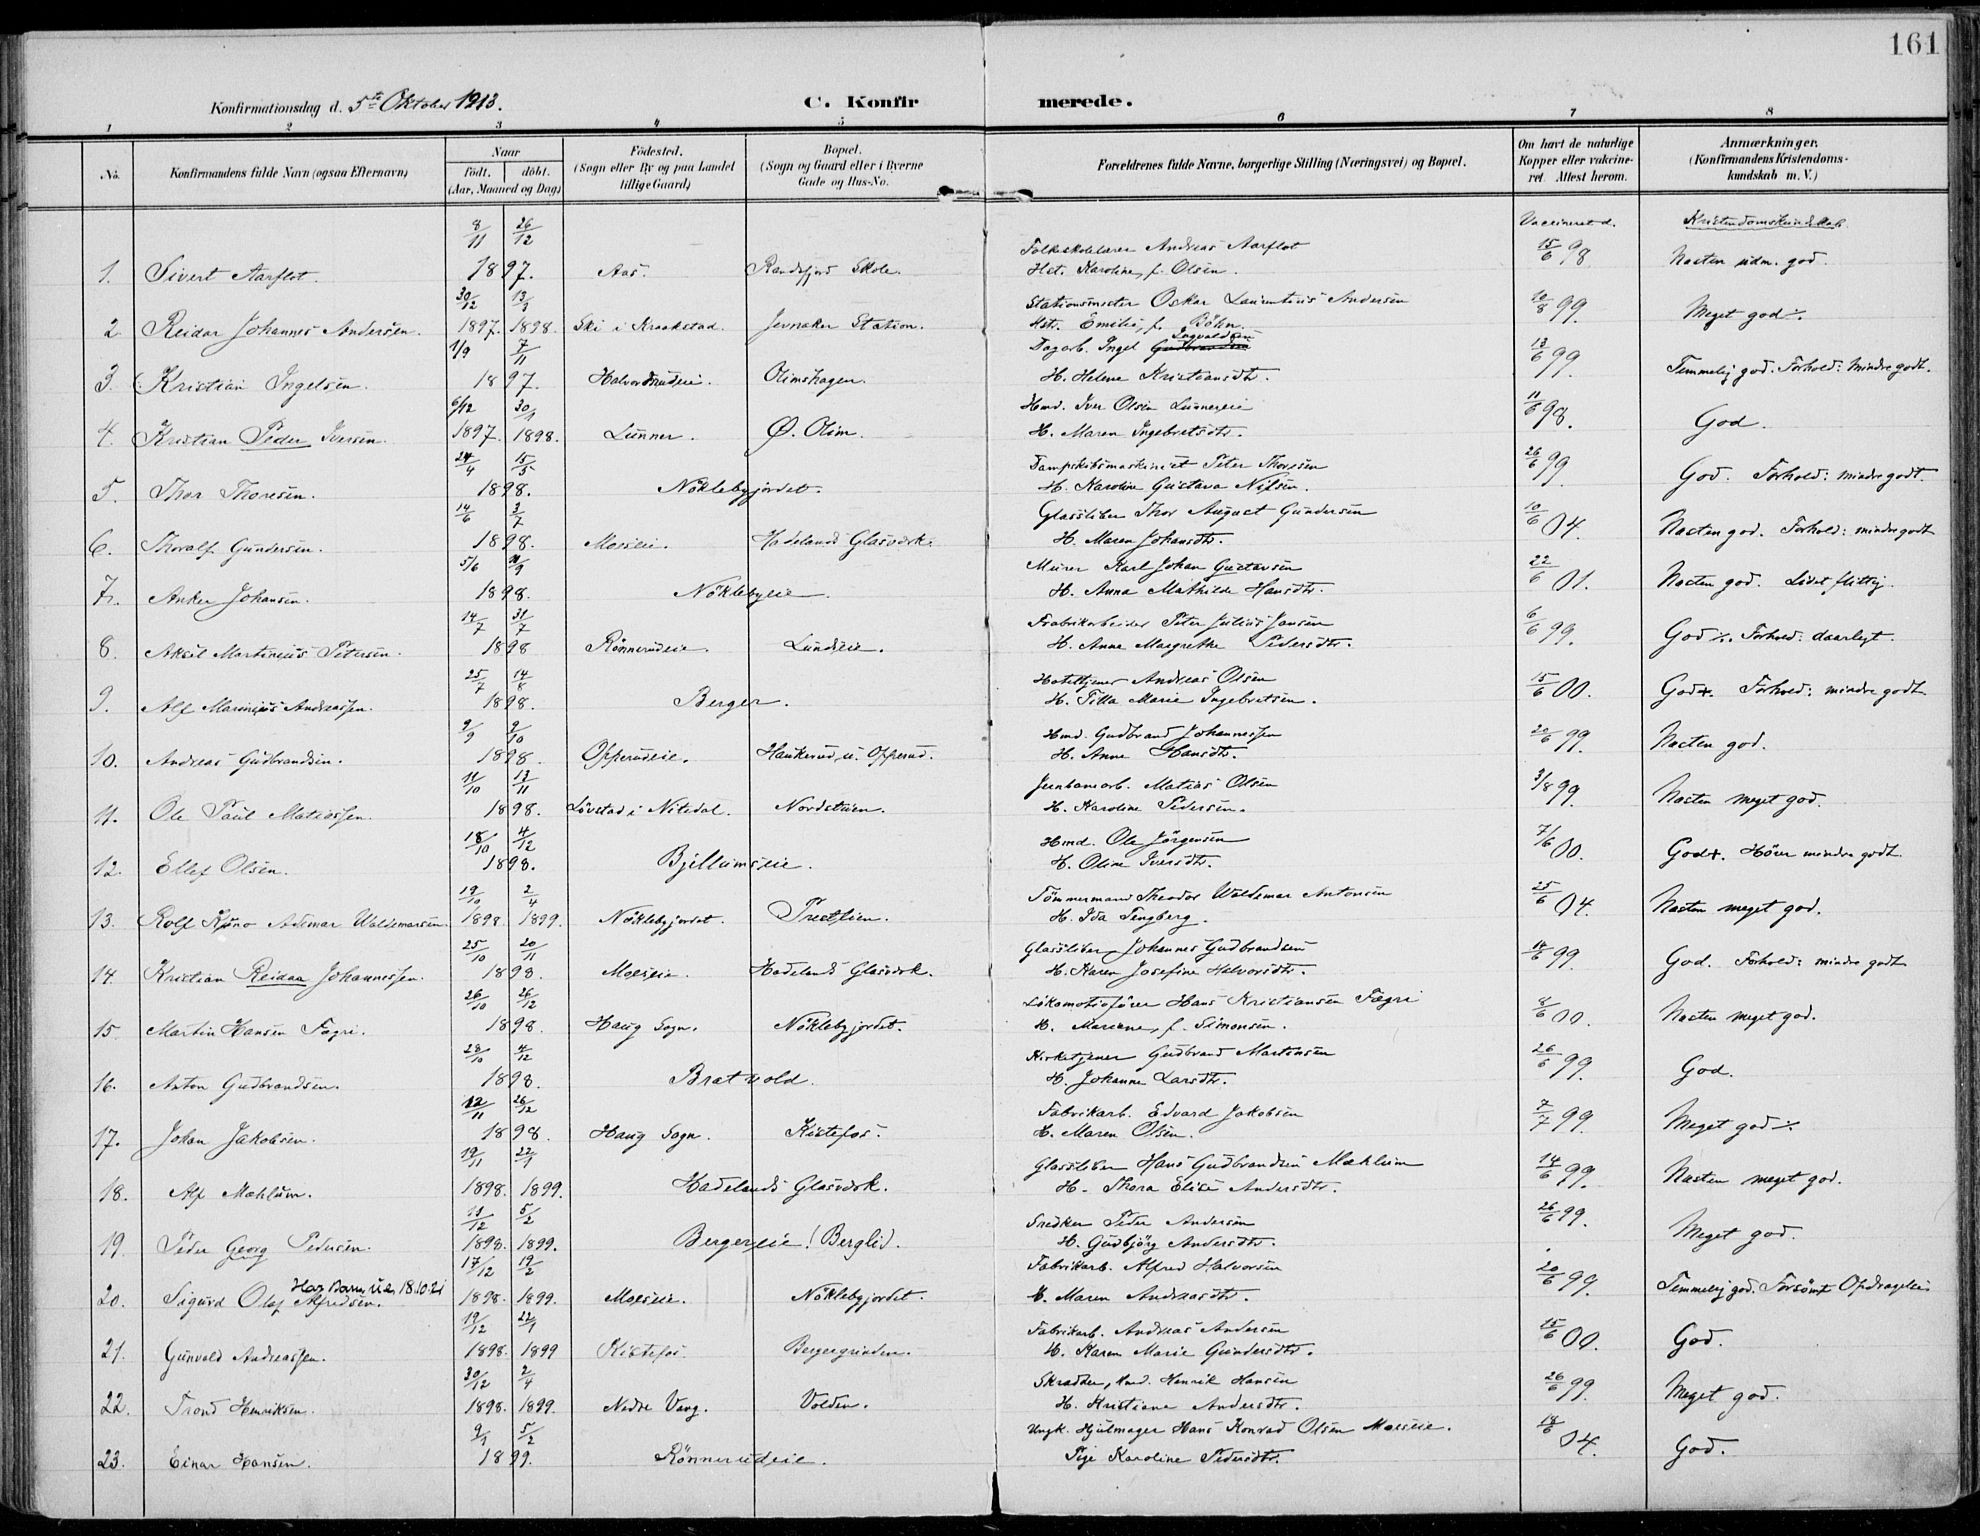 161
Konfirmationsdag d. 5te Oktober 1913.
C. Konfirmerede.
1 2 3 4 5 6 7 8
No. Konfirmandens fulde Navn (ogsaa Efternavn) Naar født. døbt. (Aar, Maaned og Dag) Fødested. (Sogn eller By og paa Landet tillige Gaard) Bopæl. (Sogn og Gaard eller i Byerne Gade og Hus-No. Forældrenes fulde Navne, borgerlige Stilling (Næringsvei) og Bopæl. Om havt de naturlige Kopper eller vaccineret. Attest herom. Anmærkninger. (Konfirmandens Kristendomskundskab m. V.)
Vaccineret d. Kristendomskundskab
8/11 26/12 Folkeskolelærer Andreas Aarflot 15/6 98
1. Sivert Aarflot. 1897. Aas. Randsfjord Skole. Hst. Karoline, f. Olsen. Næsten udm. god.
30/12 13/1 Stationsmester Oskar Laurentius Andersen 10/8 99
2 Reidar Johannes Andersen. 1897. 1898. Ski i Kraakstad. Jevnaker Station. Hst. Emilie, f. Böhn. Meget god ÷.
1/9 7/11 Dagarb. Ingel Gudbrandsen Ingvaldsen 13/6 99
3. Kristian Ingelsen. 1897. Halvordsrudeie. Olimshagen. H. Helene Kristiansdtr. Temmelig god. Forhold: mindre godt.
6/12 30/1 Hmd. Iver Olsen Lunnereie 11/6 98.
4. Kristian Peder Iversen. 1897. 1898. Lunner. Ø. Olim. H. Maren Ingebretsdtr. God.
24/4 15/5 Dampskibsmaskinist Peter Thoresen 26/6 99
5. Thor Thoresen. 1898. Nöklebyjordet. H. Karoline Gustava Nilsen. God. Forhold: mindre godt.
14/6 3/7 Glassliber Thor August Gundersen 10/6 04.
6. Thoralf Gundersen. 1898. Moseie. Hadelands Glasværk. H. Maren Johansdtr. Næsten god. Forhold: mindre godt
5/6 11/9 Murer Karl Johan Gustavsen 22/6 01.
7. Anker Johansen. 1898. Nöklebyeie. H. Anna Mathilde Hansdtr. Næsten god. Lidet flittig.
14/7 31/7 Fabrikarbeider Peter Julius Jansen 6/6 99.
8. Aksel Martinius Petersen. 1898 Rönnerudeie. Lundseie. H. Anne Margrethe Pedersdtr. God ÷. Forhold: daarligt.
25/7 14/8 Hoteltjener Andreas Olsen 15/6 00.
9. Alf Marinius Andreassen. 1898. Berger. H. Tilla Marie Ingebretsen. God+. Forhold: mindre godt
9/9 9/10 Hmd. Gudbrand Johannessen 20/6 99.
10. Andreas Gudbrandsen. 1898. Opperudeie. Haukerud, u. Opperud. H. Anne Hansdtr. Næsten god.
11/10 13/11 Jernbanearb. Matias Olsen 3/8 99.
11. Ole Paul Matiassen. 1898. Lövstad i Nitedal. Nordstuen. H. Karoline Pedersen. Næsten meget god.
18/10 4/12 Hmd. Ole Jörgensen 7/6 00.
12. Ellef Olsen. 1898. Bjellumseie. H. Oline Iversdtr. God+. Hörer mindre godt.
19/10 2/4 Tömmermand Theodor Waldemar Antonsen 25/6 04.
13. Rolf Kuno Ademar Waldemarsen. 1898 1899. Nöklebyjordet. Prestlien. H. Ida Tengberg. Næsten meget god.
25/10 20/11 Glassliber Johannes Gudbrandsen 14/6 99.
14. Kristian Reidar Johannessen. 1898. Moseie. Hadelands Glasværk. H. Karen Josefine Halvorsdtr. God. Forhold: mindre godt
26/10 26/12 Lokomotivförer Hans Kristiansen Fagri 8/6 00.
15. Martin Hansen Fagri. 1898. Haug Sogn. Nöklebyjordet. H. Mariane, f. Simonsen. Næsten meget god.
28/10 4/12 Kirketjener Gudbrand Martinsen 26/6 99.
16. Anton Gudbrandsen. 1898. Bratvold. H. Johanne Larsdtr. God.
12/11 26/12 Fabrikarb. Edvard Jakobsen 7/7 99.
17. Johan Jakobsen. 1898. Haug Sogn. Kistefos. H. Maren Olsen. Meget god ÷.
19/11 22/1 Glassliber Hans Gudbrandsen Mæhlum 14/6 99.
18. Alf Mæhlum. 1898. 1899. Hadelands Glasværk. H. Thora Elise Andersdtr. Næsten meget god.
11/12 5/2 Snedker Peder Andersen 26/6 99.
19. Peder Georg Pedersen. 1898. 1899. Bergereie (Berglid). H. Gudbjörg Andersdtr. Meget god.
17/12 19/2 Fabrikarb. Alfred Halvorsen 20/6 99.
20. Sigurd Olaf Alfredsen. 1898. 1899. Moseie. Nöklebyjordet. H. Maren Andreasdtr. Temmelig god. Forsömt Opdragelse
19/12 22/1 Fabrikarb. Andreas Andersen 15/6 00.
21. Gunvald Andreassen. 1898. 1899 Kistefos. Bergergrinden. H. Karen Marie Gundersdtr. God.
30/12 2/4 Skrædder, Hmd. Henrik Hansen 26/6 99
22. Trond Henriksen. 1898. 1899. Nedre Vang. Volden. H. Kristiane Andersdtr. Meget god.
9/1 5/2 Ungk. Hjulmager Hans Konrad Olsen Moseie. 18/6 04.
23. Einar Hansen. 1899. Rönnerudeie. Pige Karoline Pedersdtr. God.